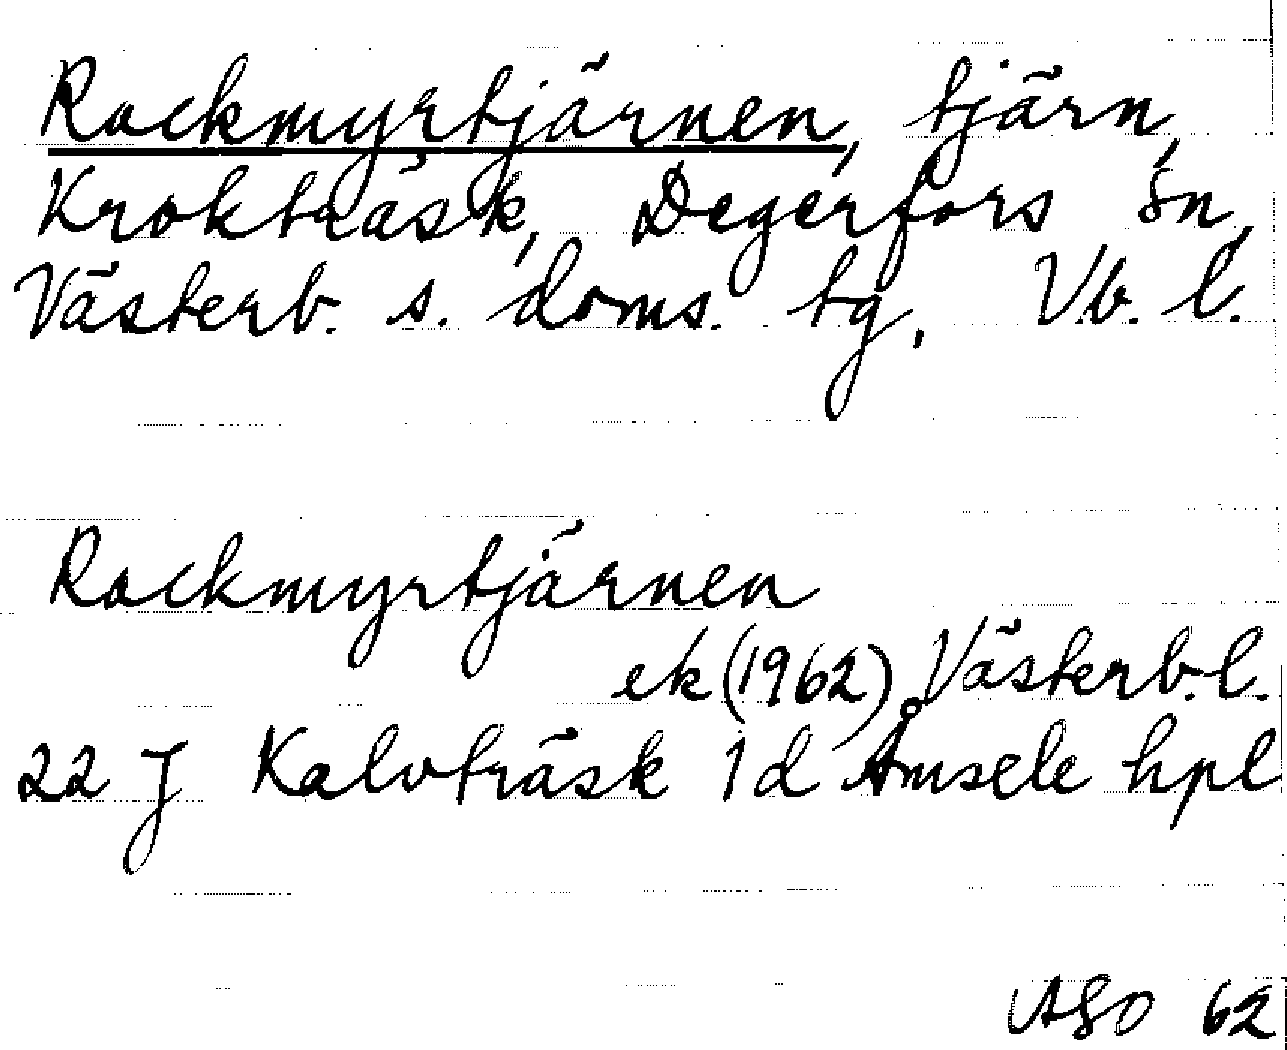 Rackmyrtjärnen, tjärn,
Krokträsk, Degerfors sn,
Västerb. s. doms. tg, Vb. l.
Rackmyrtjärnen
ek (1962), Västerb. l.
22 J Kalvträsk 1d Åmsele hpl
ASO 62